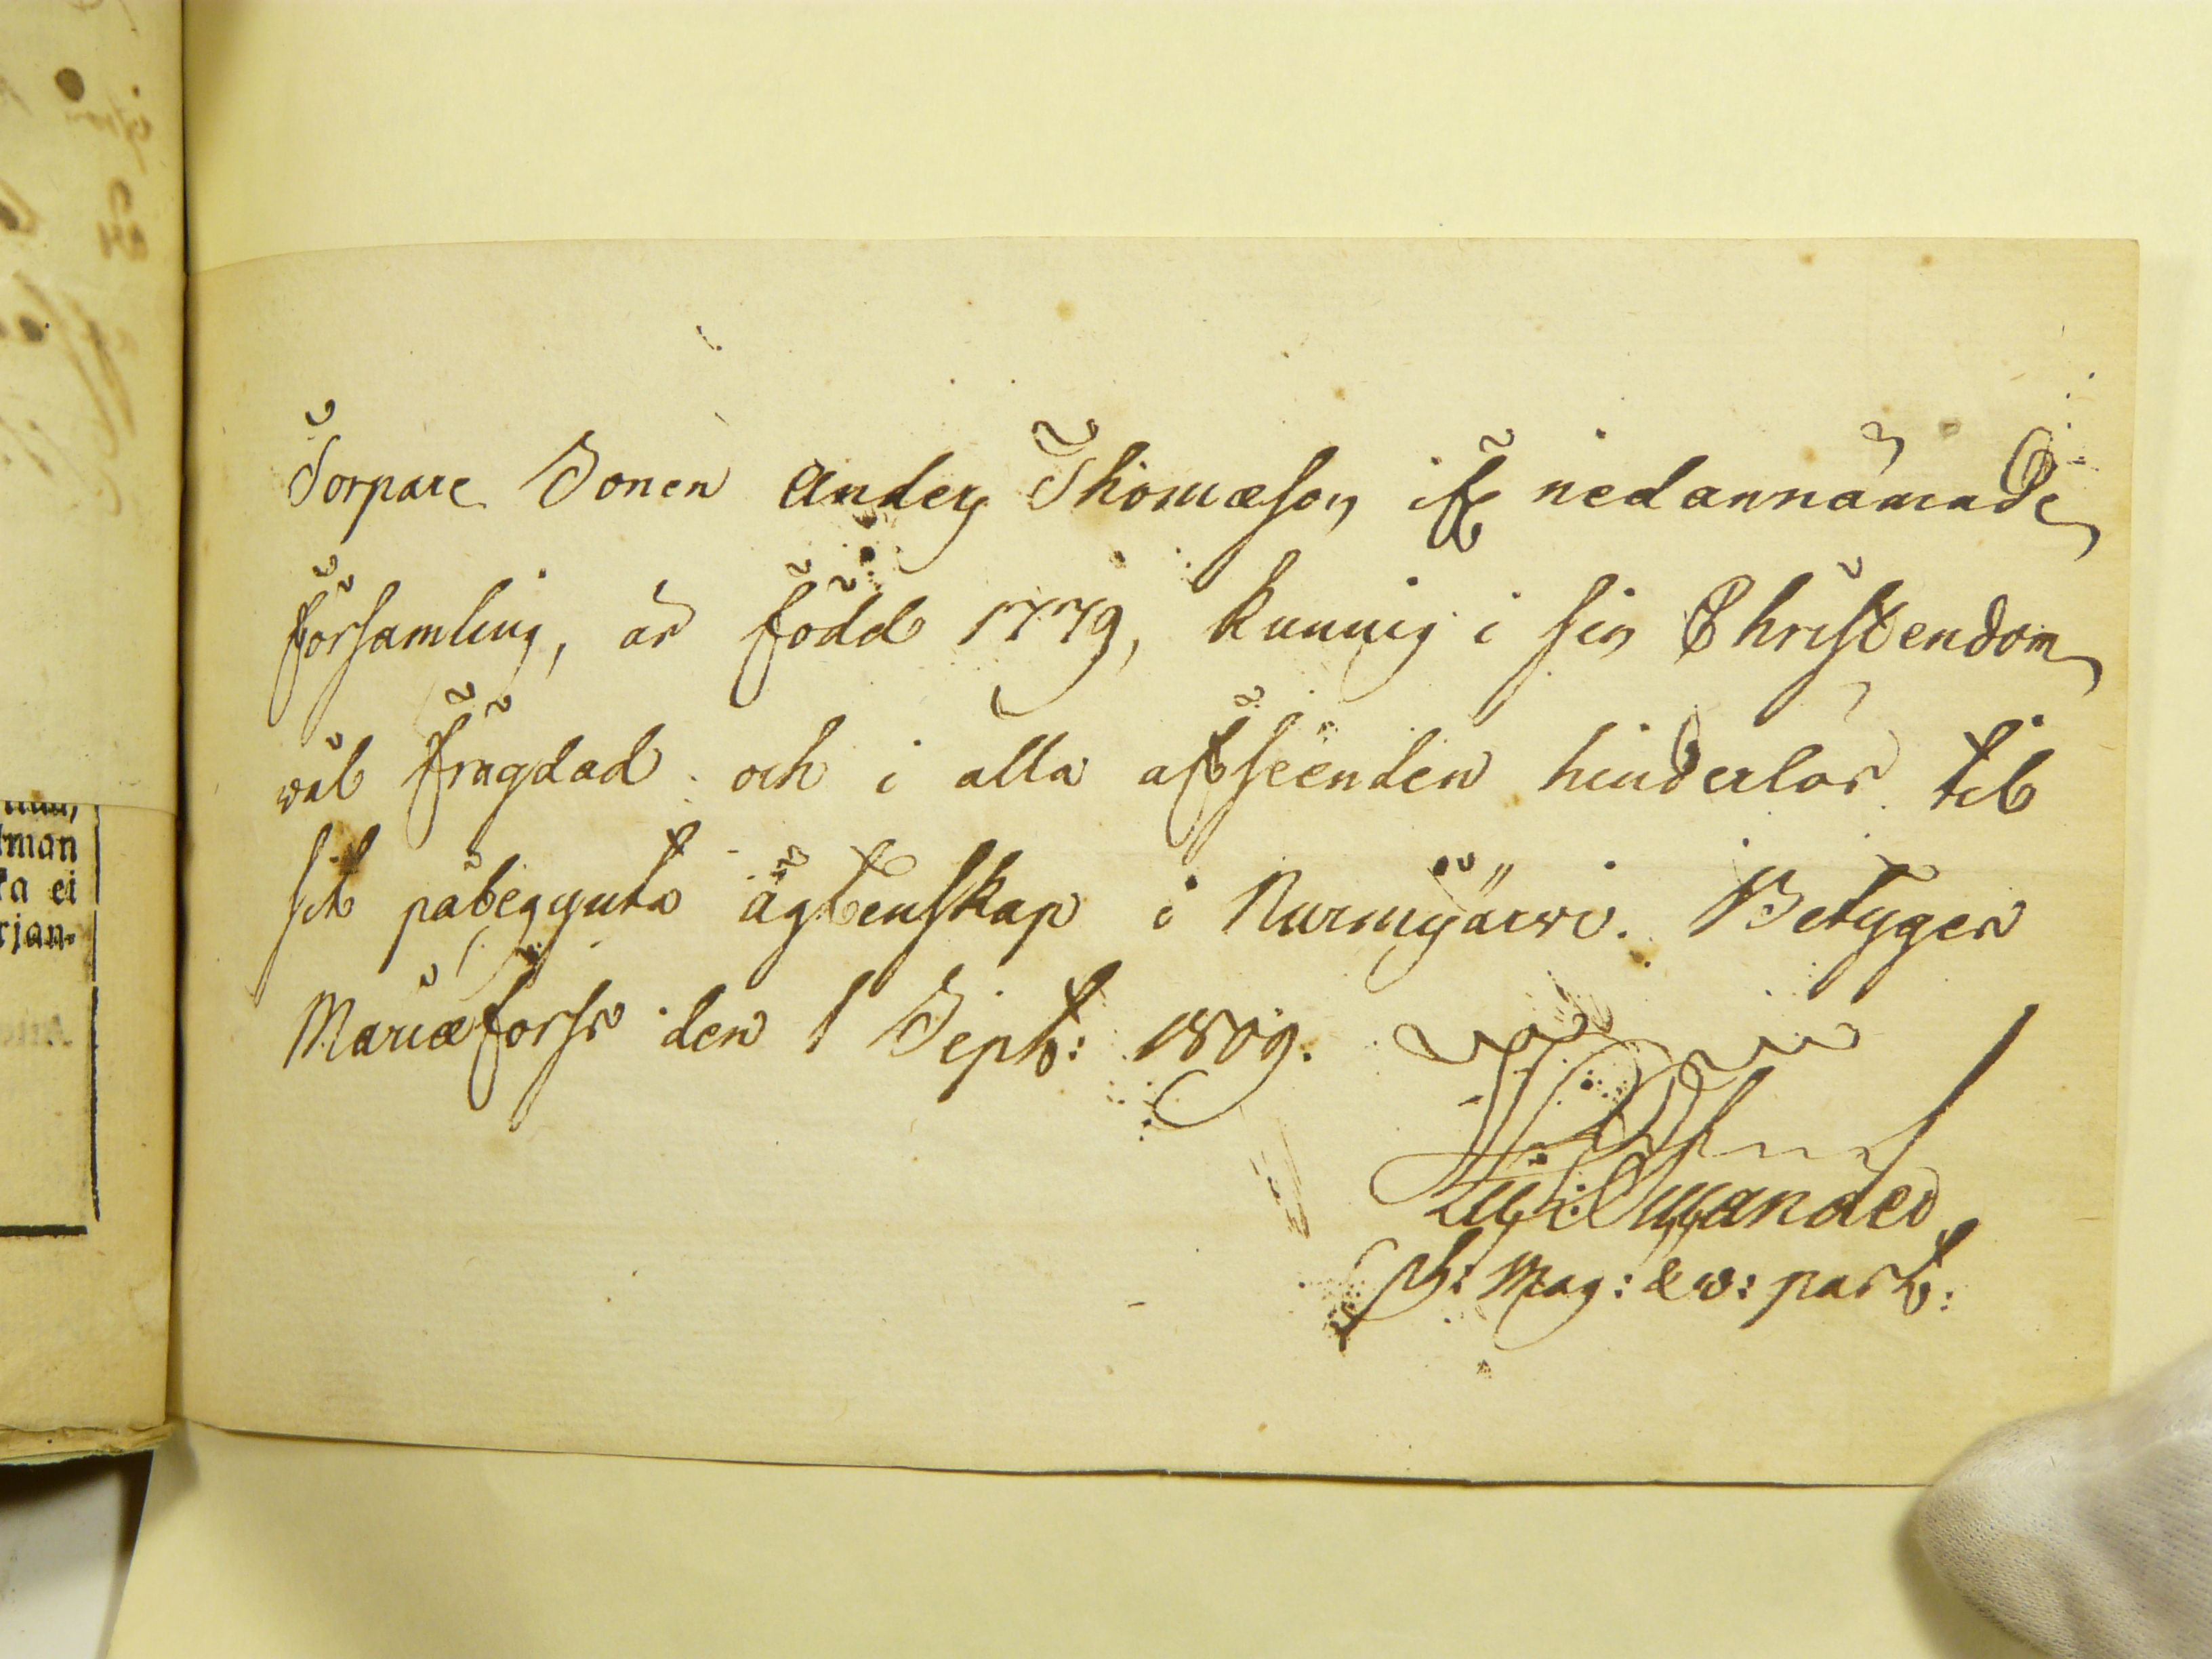 Torpare Sonen Anders Thomæson if nedannämnde
församling, är född 1779, kunnig i sin Christendom
väl frägdad och i alla afseenden hinderlös til
sit påbegynta ägtenskap i Nurmijärvi. Betyger
Mariæfors den 1 Sept: 1809.
Mag: & v: past:
man
ka ei
rjan-